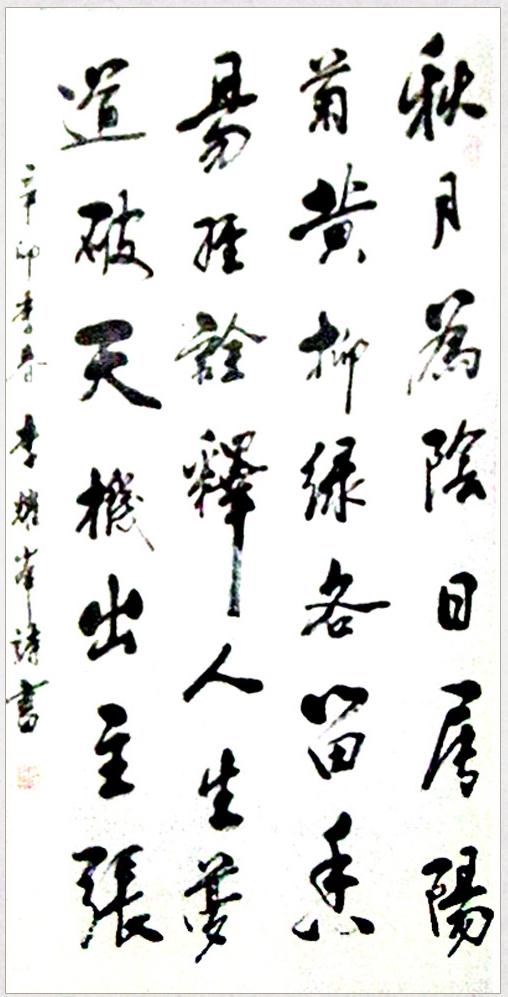 秋月為陰日屬陽
菊黄柳绿各留香
易经詮釋人生夢
道破天機出主張
辛卯季春李耀峯詩書